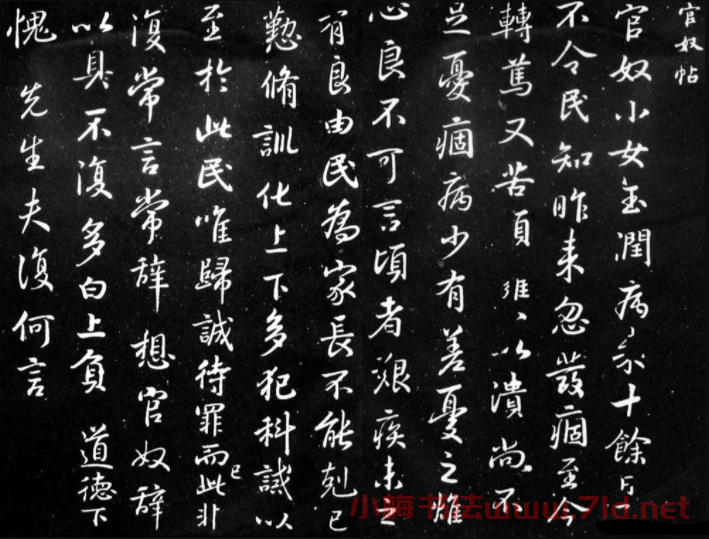 官奴帖
官奴小女玉潤病來十餘日
不令民知昨來忽發痼至今
轉篤又苦頭癰癰以潰尚不
足憂痼病少有差憂之燋
心良不可言頃者艱疾未之
有良由民為家長不能剋己
懃脩訓化上下多犯科誡以
至於此民唯歸誠待罪而已此非
復常言常辭想官奴辭
以具不復多白上負道德下
愧先生夫復何言
小梅书法www.7ld.net